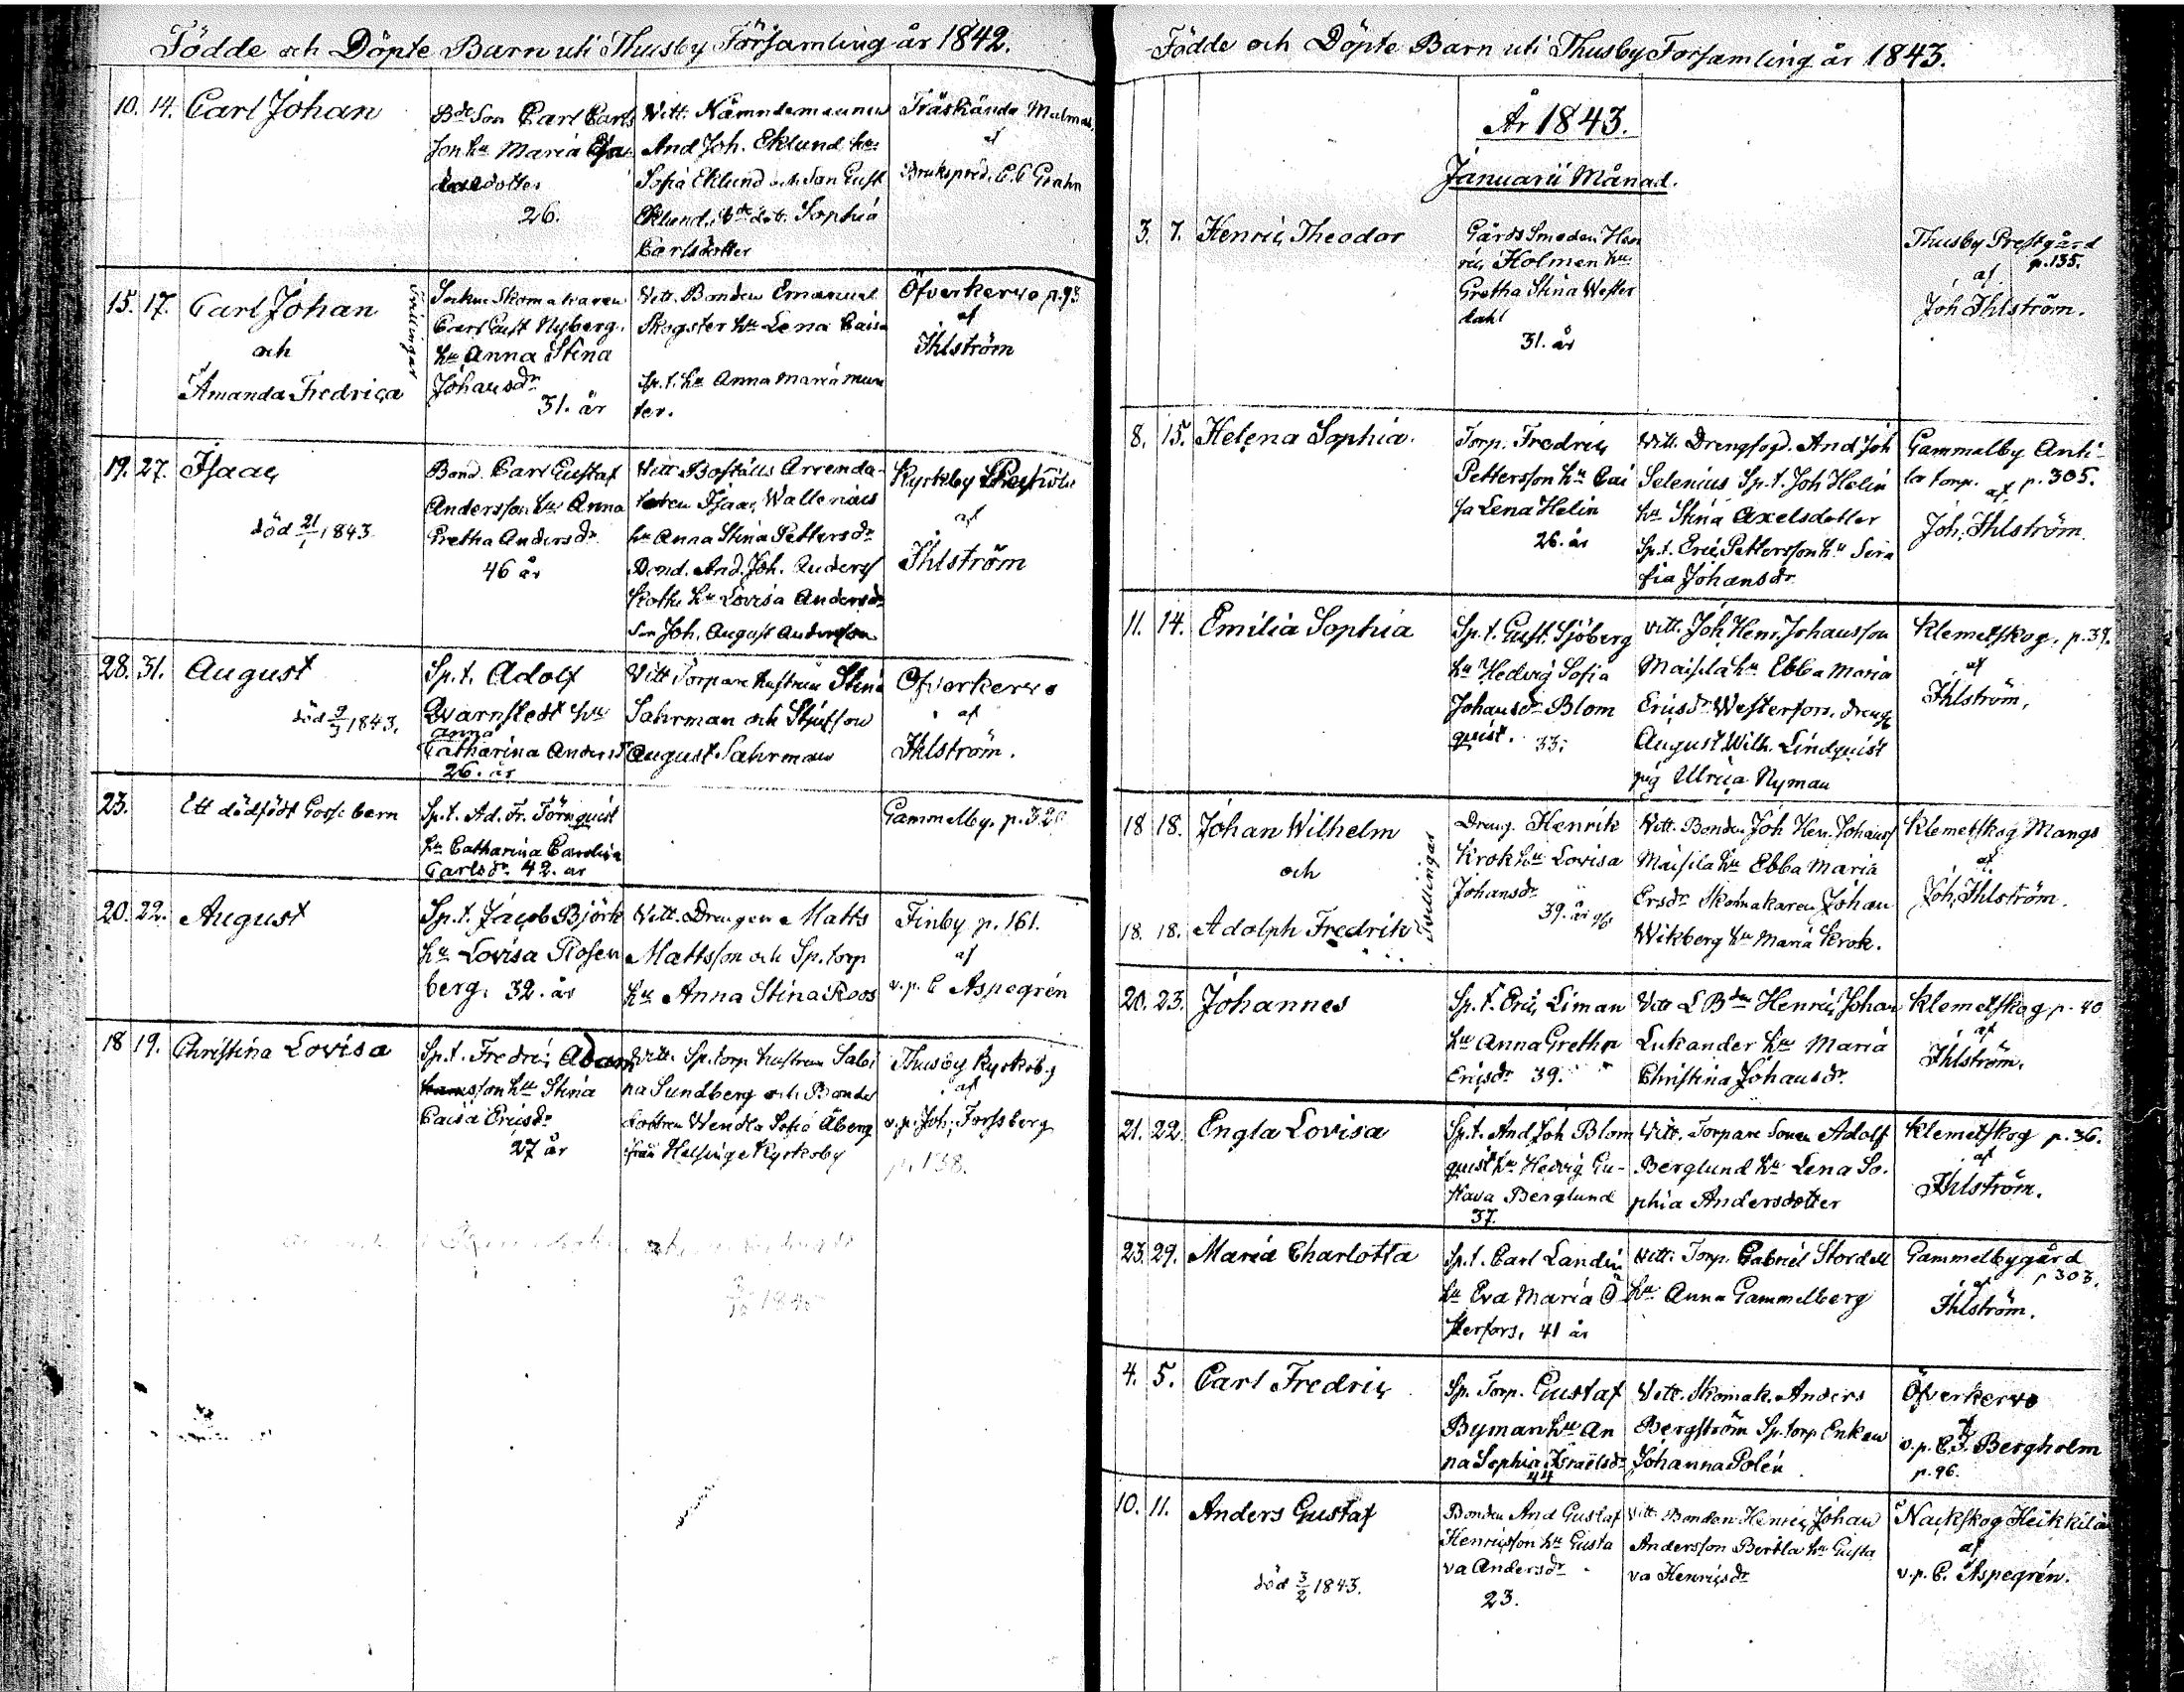 Födde och Döpte Barn uti Thusby Församling år 1842.
10. 14. Carl Johan
Bde Son Carl Carls
son hu Maria
dotter
26.
Vitt. Nämndemannen
And Joh. Eklund hu
Sofia Eklund och Son Gust
Eklund, Sophia
Carlsdotter
Träskända Malmas.
af
Brukspred. C. C Grahn
15. 17. Carl Johan
och
Amanda Fredrica
Tvillingar
Sockne Skomakaren
Carl Gust Nyberg.
hu Anna Stina
Johansdr
31. år
Vitt. Bonden Emanuel
Skogster hu Lena Caisa
Sp. t. hu Anna Maria Mun
ter.
Öfverkervo p. 93
af
Ihlström
19. 27. Isaac
död 21/1 1843.
Bond. Carl Gustaf
Andersson hu Anna
Gretha Andersdr
46 år
Vitt Boställs Arrenda-
toren Isaac Wallenius
hu Anna Stina Pettersdr
Bond. And. Joh. Anders
hu Lovisa Andersdr
Son Joh. August Andersson
Kyrkby
af
Ihlström
28. 31. August
död 9/3 1843.
Sp. t. Adolf
Qvarnstedt hu
Anna
Catharina Anders
26. år
Vitt Torpare hustrun Stina
Sahrman och Stjufson
August Sahrman
Öfverkervo
af
Ihlström.
23. Ett dödfödt Gosse barn
Sp. t. Ad. Fr. Törnquist
hu Catharina Carolina
Carlsdr 42. år
Gammelby. p. 320
20. 22. August
Sp. t. Jacob Björk
hu Lovisa Rosen
berg. 32. år
Vitt. Drengen Matts
Mattsson och Sp. torp
hu Anna Stina Roos
Finby p. 161.
af
v. p. C Aspegrén
18 19. Christina Lovisa
Sp. t. Fredric Adam
sson hu Stina
Caisa Ericsdr
27 år
Vitt. Sp. torp hustrun Sabi
na Sundberg och Bonde
dottren Wendla Sofia Åberg
ifrån Helsinge Kyrkoby
Thusby Kyrkoby
af
v. p. Joh. Forssberg
p. 138.
Födde och Döpte Barn uti Thusby Forsamling år 1843.
År 1843.
Januarii Månad.
3. 7. Henric Theodor
Gårds Smeden Hen
ric Holmen hu
Gretha Stina Wester
dahl
31. år
Thusby Prestgård
p. 135.
af
Joh Ihlström.
8. 15. Helena Sophia.
Torp. Fredric
Pettersson hu Cai
sa Lena Helin
26. år
Vitt. Drengfogd. And Joh
Selenius Sp. t. Joh Helin
hu Stina Axelsdotter
Sp. t. Eric Pettersson hu Sera
fia Johansdr
Gammalby Anti-
la torp. p. 305.
af
Joh. Ihlström.
11. 14. Emilia Sophia
Sp. t. Gust. Sjöberg
hu Hedvig Sofia
Johansdr Blom
quist. 33.
Vitt. Joh Henr. Johansson
Maisila hu Ebba Maria
Ericsdr Westerfors. Dreng
August Wilh. Lindquist
pig Ulrica Nyman
Klemetskog. p. 39.
af
Ihlström.
18 18. Johan Wilhelm
och
18. 18. Adolph Fredrik
Tvillingar
Dreng. Henrik
Krok hu Lovisa
Johansdr
39. år
Vitt. Bonden Joh Hen. Johans
Maisila hu Ebba Maria
Ersdr Skomakaren Johan
Wikberg hu Maria Krok.
Klemetskog Mangs
af
Joh. Ihlström.
20. 23. Johannes
Sp. t. Eric Liman
hu Anna Gretha
Ericsdr 39.
Vitt L Bden Henric Johan
Lukander hu Maria
Christina Johansdr
Klemetskog p. 40
af
Ihlström.
21. 22. Engla Lovisa
Sp. t. And Joh Blom
quist hu Hedvig Gu-
stava Berglund
37.
Vitt. Torpare Sonen Adolf
Berglund hu Lena So-
phia Andersdotter
Klemetskog p. 36.
af
Ihlström.
23. 29. Maria Charlotta
Sp. t. Carl Landén
hu Eva Maria Ö
sterfors. 41 år
Vitt. Torp. Gabriel Stordell
hu Anna Gammelberg
Gammelbygård
p 303.
af
Ihlström.
4. 5. Carl Fredric
Sp. Torp. Gustaf
Byman hu An
na Sophia Israelsdr
44
Vitt. Skomak. Anders
Bergström Sp. torp Enkan
Johanna Polén
Öfverkervo
af
v. p. C. J. Bergholm
p. 96.
10. 11. Anders Gustaf
död 3/2 1843.
Bonden And Gustaf
Henricsson hu Gusta
va Andersdr
23.
Vitt. Bonden Henric Johan
Andersson Bertla hu Gusta
va Henricsdr
Nackskog Heikkilä
af
v. p. C. Aspegrén.